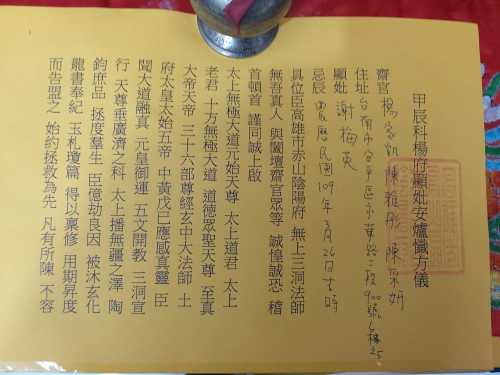 甲辰科楊府顯妣安爐懺方儀
齋官 楊家凱 陳雅彤 陳采妍
住址 台南市安平區永華路二段900號6樓25
顯妣 謝梅英
忌辰 農歷民國109年3月26日吉時
具位臣高雄市赤山陰陽府 無上三洞法師
無吾真人 與闔壇齋官眾等 誠惶誠恐 稽
首頓首 謹同誠上啟
太上無極大道元始天尊 太上道君 太上
老君 十方無極大道 道德眾聖天尊 至真
大帝天帝 三十六部尊經玄中大法師 土
府太皇太始五帝 中黃戊已應感真靈 臣
聞大道融真 元皇御運 五文開教 三洞宣
行 天尊垂廣濟之科 太上播無疆之澤 陶
鈞庶品 拯度羣生 臣億劫良因 被沐玄化
龍書奉紀 玉札瓊篇 得以稟修 用期昇度
而告盟之 始約拯救為先 凡有所陳 不容